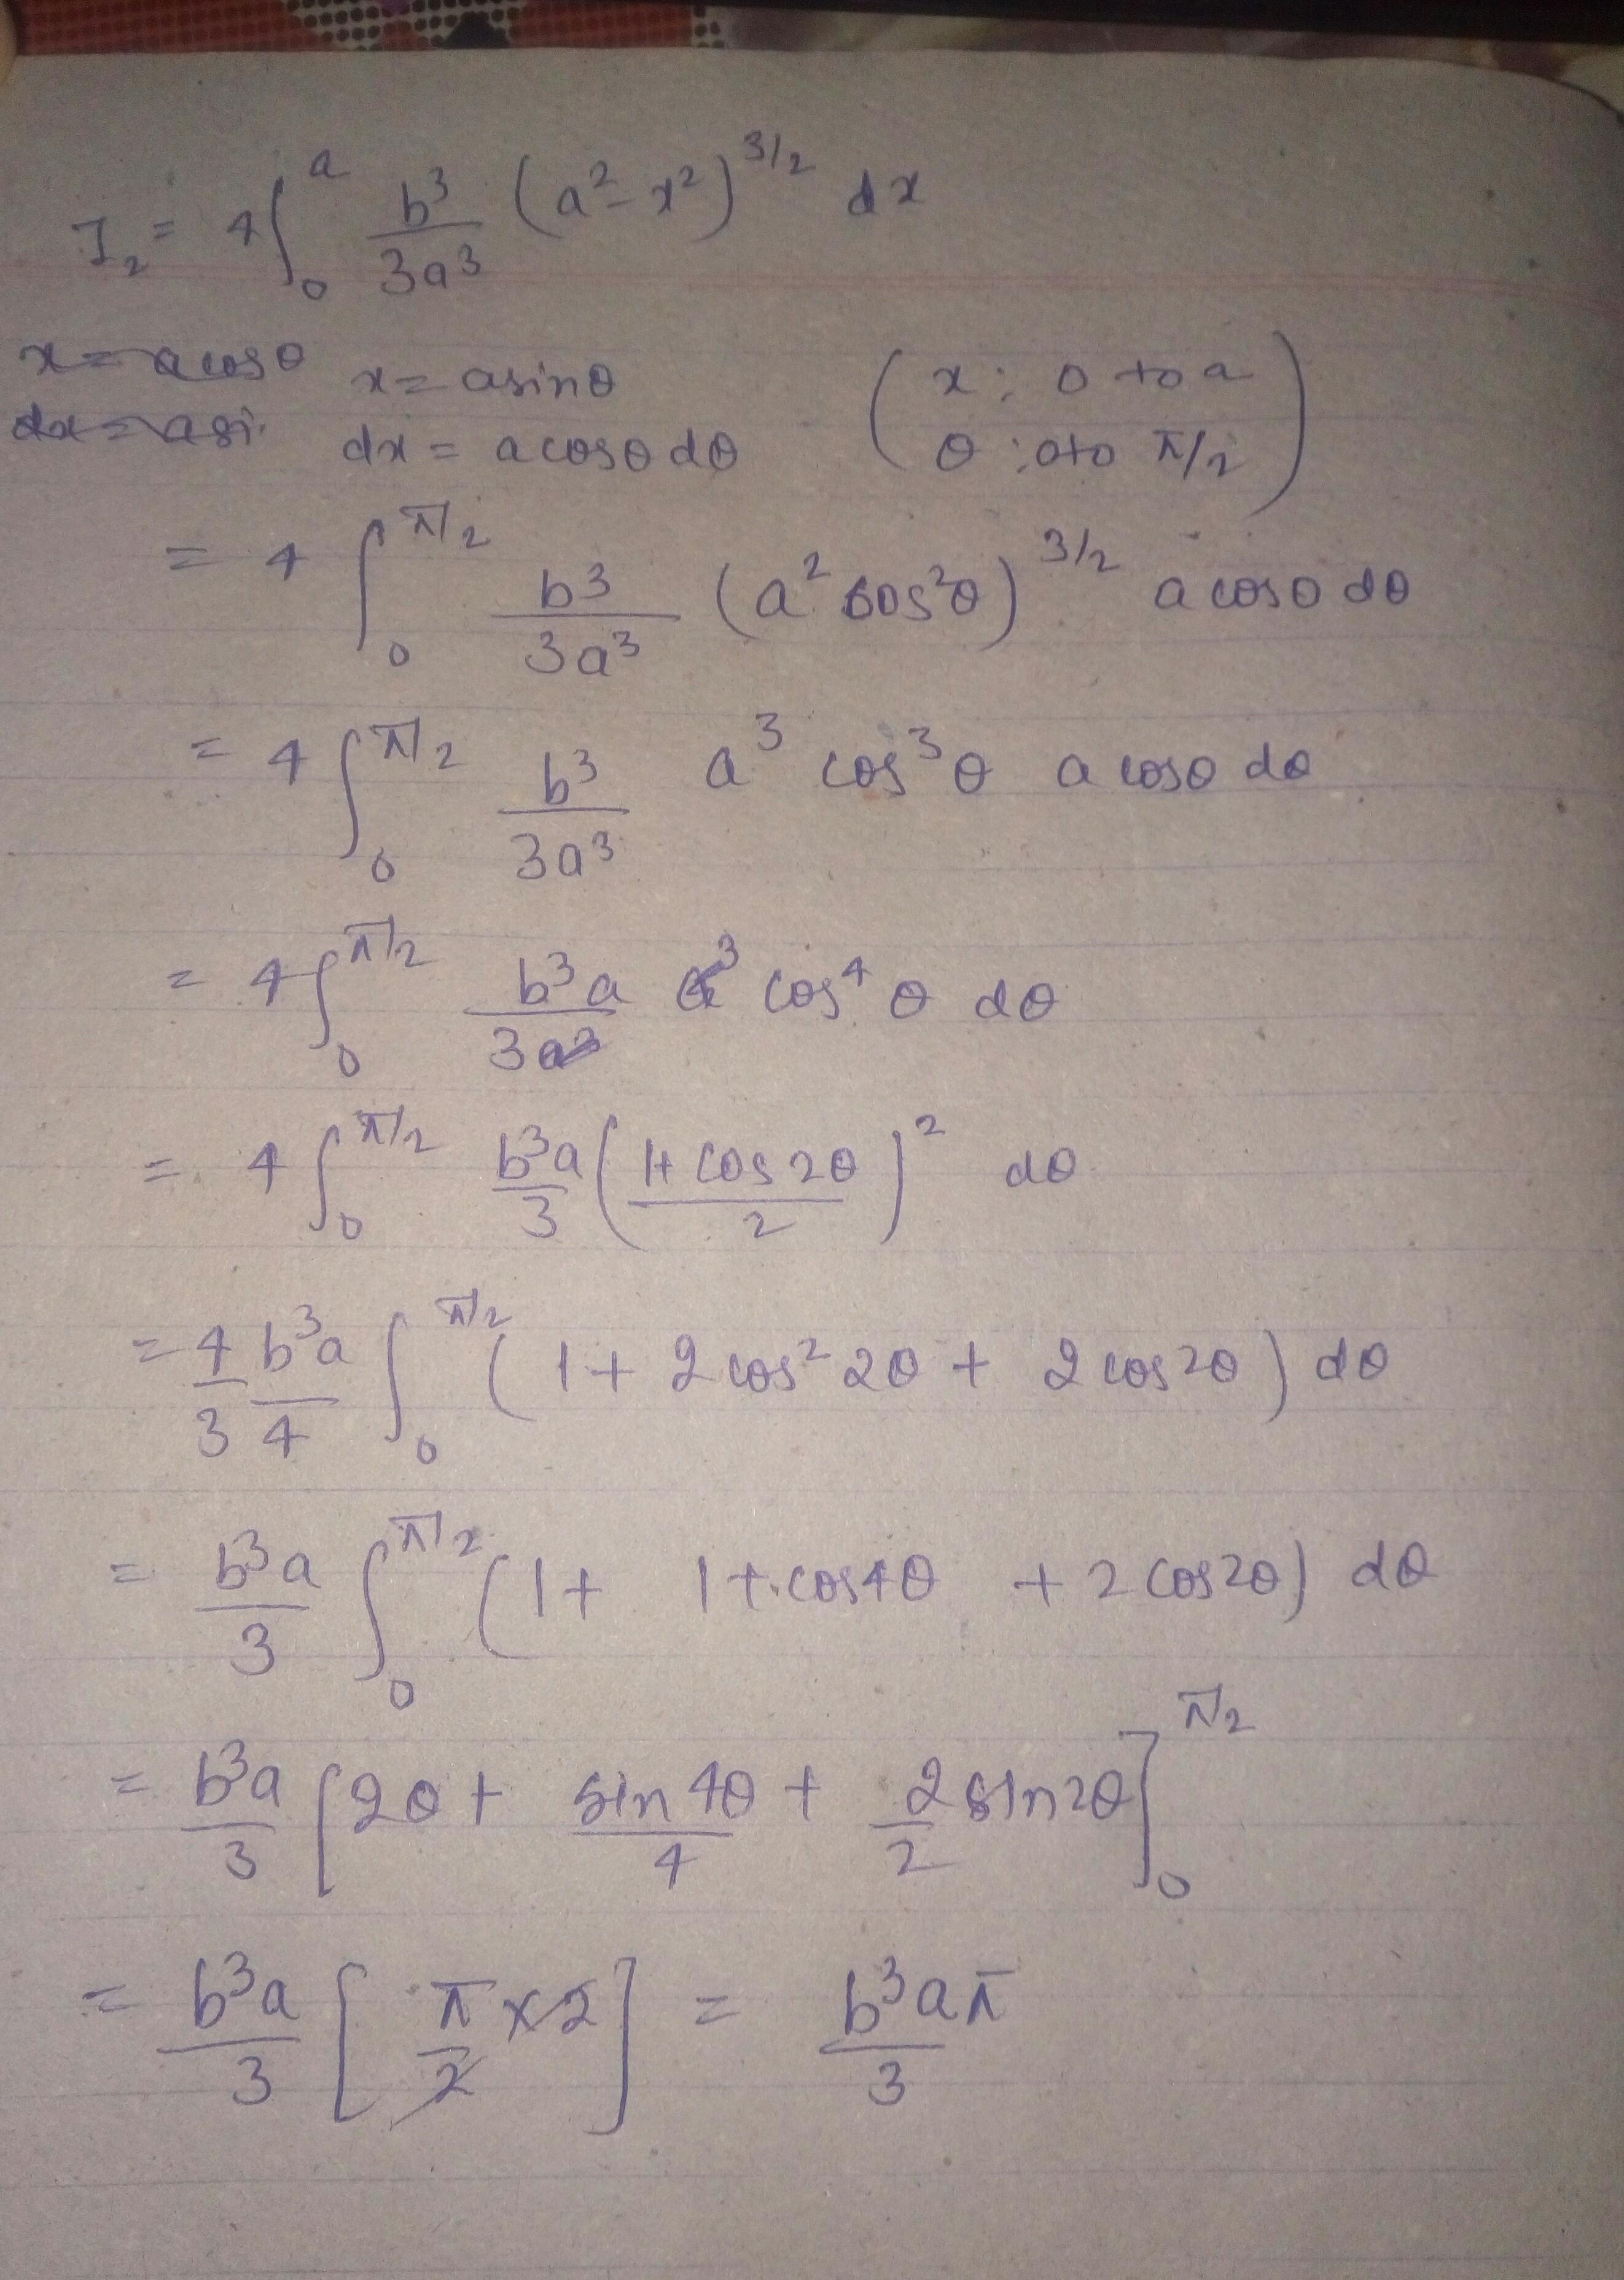 I₂ = 4∫₀ᵃ b³/3a³ (a² - x²)^3/2 dx
x = a cosθ x = a sinθ (x : 0 to a
dx = asi dx = a cosθ dθ θ : 0 to π/2)
= 4 ∫₀^π/2 b³/3a³ (a² cos²θ)^3/2 a cosθ dθ
= 4 ∫₀^π/2 b³/3a³ a³ cos³θ a cosθ dθ
= 4 ∫₀^π/2 b³a/3a³ a³ cos⁴θ dθ
= 4 ∫₀^π/2 b³a/3 (1+cos 2θ/2)² dθ
= 4/3 b³a/4 ∫₀^π/2 (1 + 2cos² 2θ + 2 cos2θ) dθ
= b³a/3 ∫₀^π/2 (1 + 1 + cos4θ + 2 cos2θ) dθ
= b³a/3 [2θ + sin 4θ/4 + 2/2 sin2θ]₀^π/2
= b³a/3 [π/2 × 2] = b³aπ/3